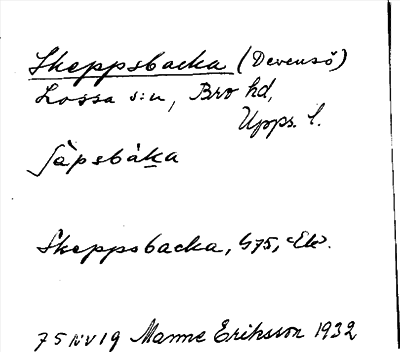 Skeppsbacka (Devensö)
Lossa s:n, Bro hd,
Upps. l.
ʃàpsbàka
Skeppsbacka, G75, Ek.
75 NV 19 Manne Eriksson 1932